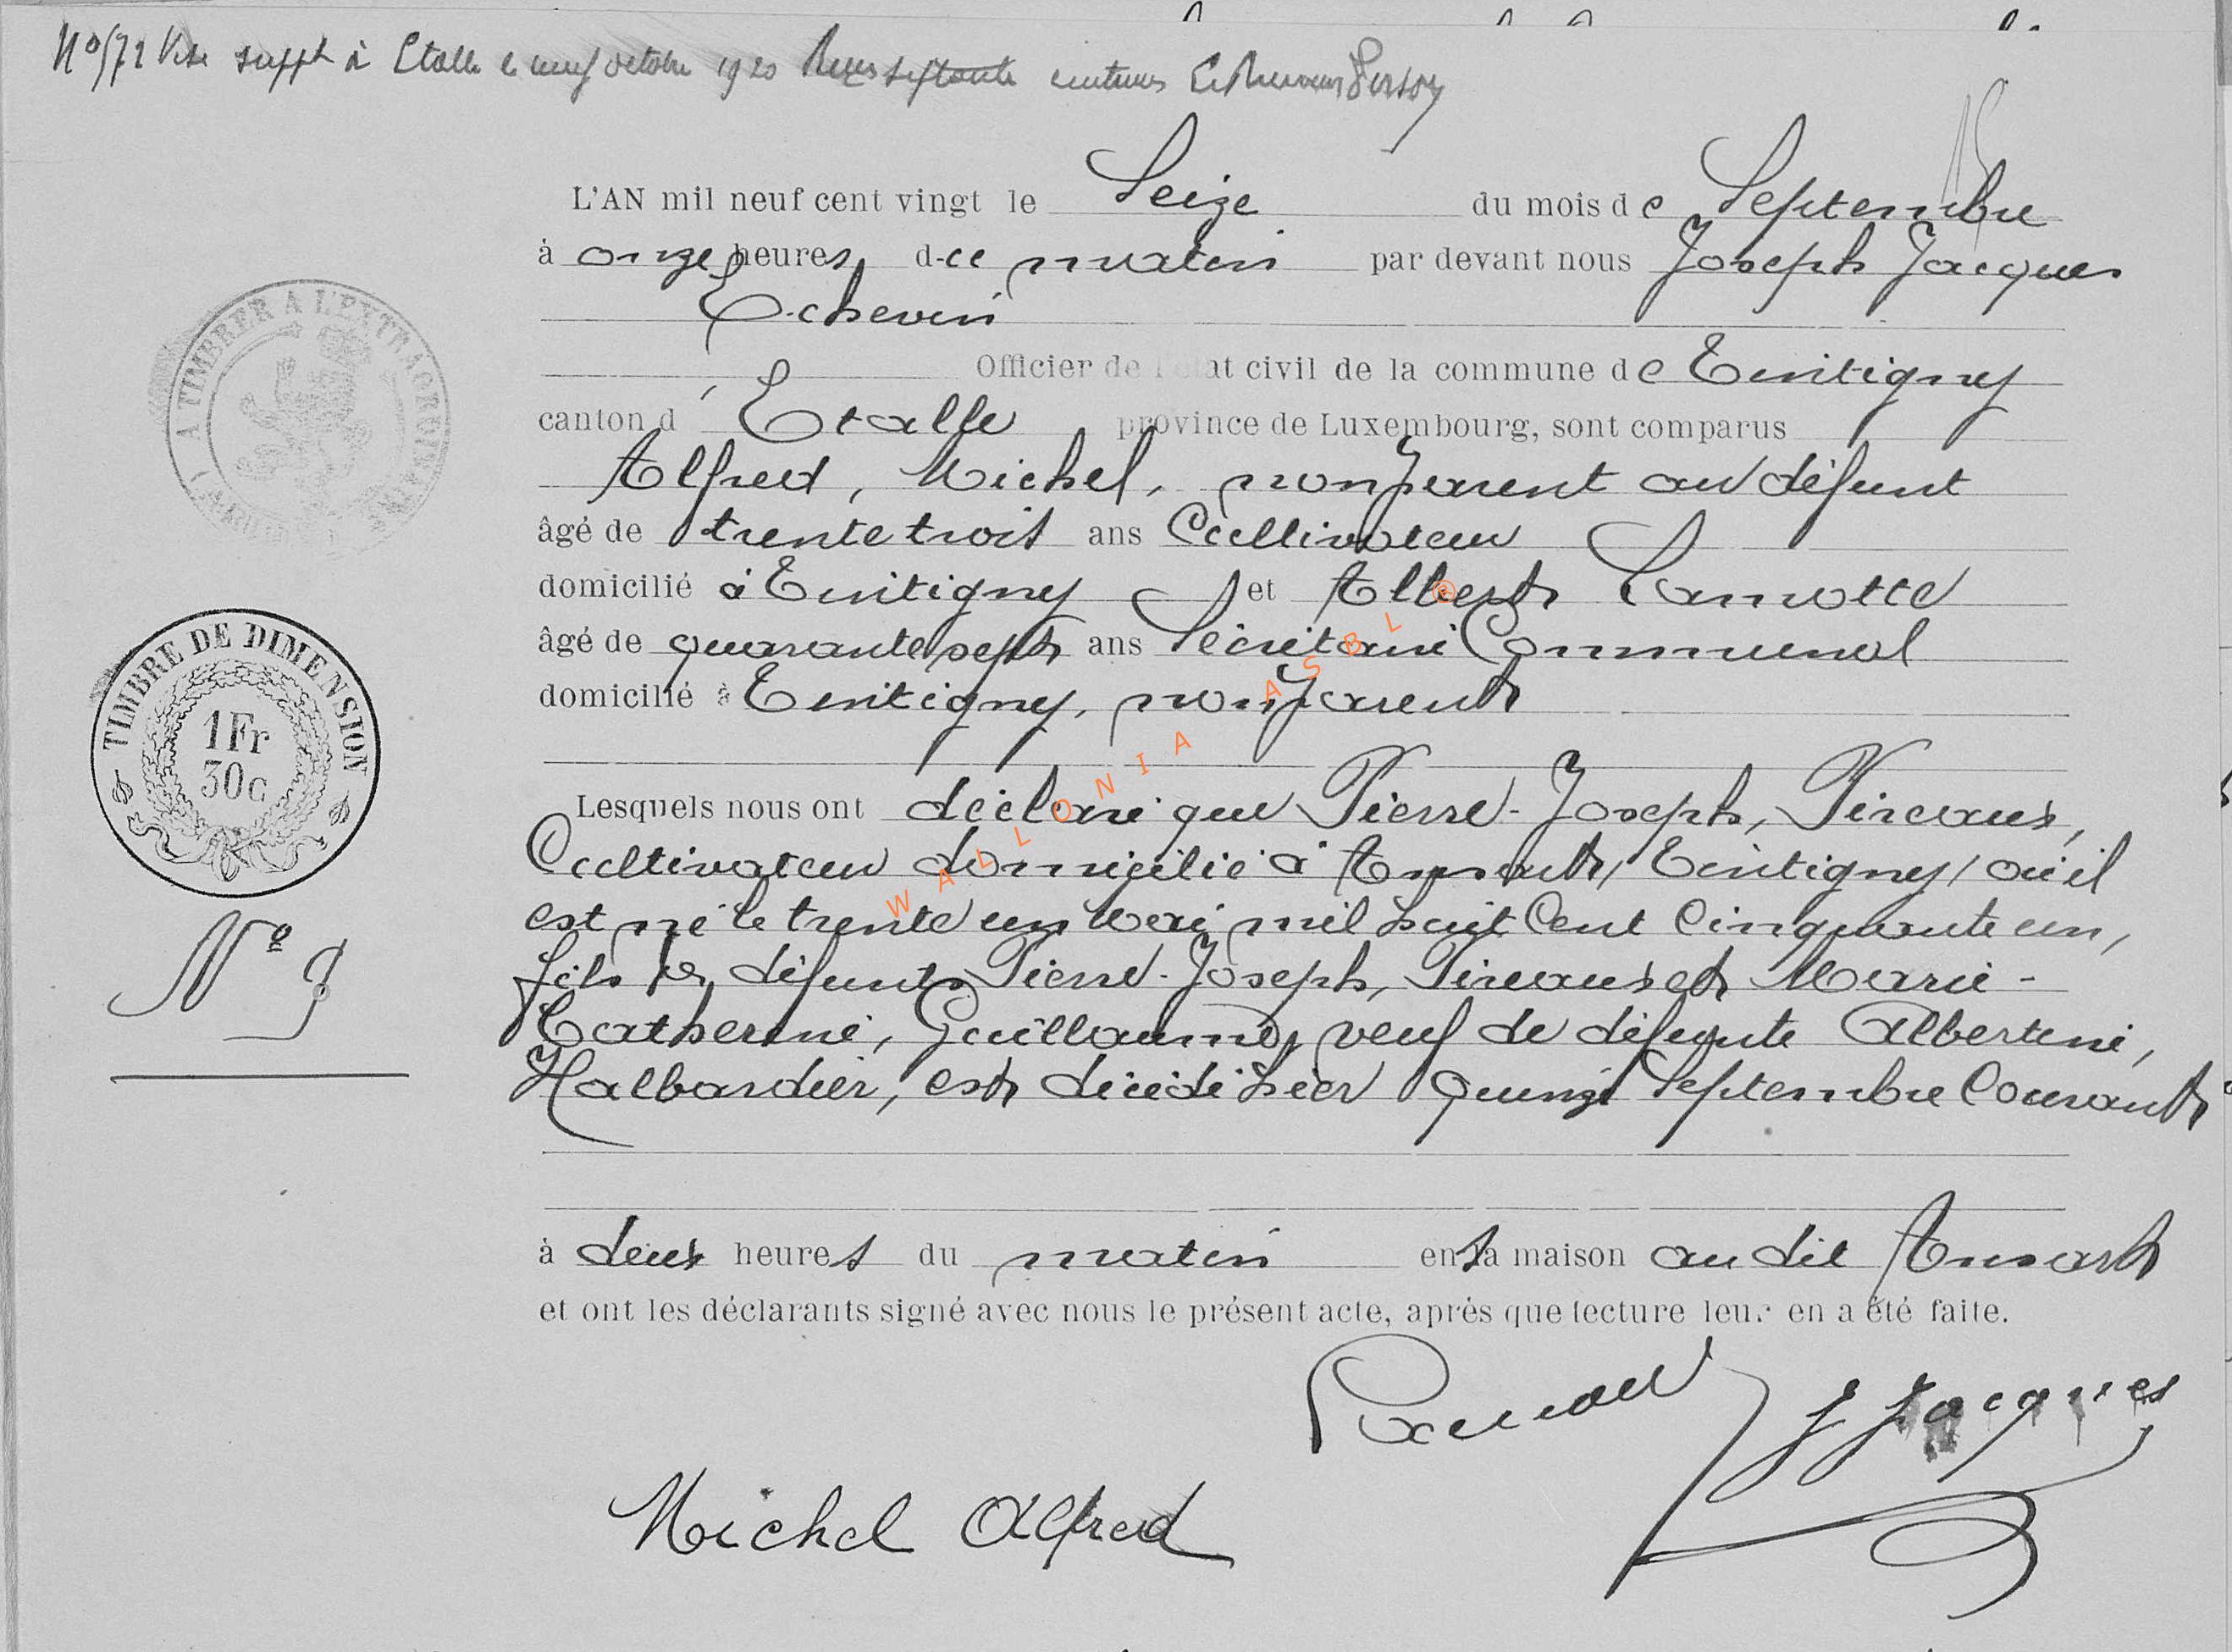 Nº 572 Visé suppt à Etalle le neuf octobre 1920 Reçu septante centimes Le Receveur
L'AN mil neuf cent vingt le Seize du mois de Septembre
à onze heures du matin par devant nous Joseph Jacques
Echevin
Officier de l'état civil de la commune de Tintigny
canton d'Etalle province de Luxembourg, sont comparus
Alfred, Michel, non parent au défunt
âgé de trente trois ans Cultivateur
domicilié à Tintigny et Albert Lamotte
âgé de quarante sept ans Secrétaire Communal
domicilié à Tintigny, non parent
Lesquels nous ont déclaré que Pierre-Joseph, Pireaux,
Cultivateur domicilié à Ansart, /Tintigny/ où il
est né le trente un Mai mil huit Cent Cinquante un,
fils de défunts Pierre-Joseph, Pireaux et Marie-
Catherine, Guillaume, veuf de défunte Albertine,
Halbardier, est décédé hier quinze Septembre Courant
à deux heures du matin en sa maison au dit Ansart
et ont les déclarants signé avec nous le présent acte, après que lecture leur en a été faite.
J Jacques
Michel Alfred
A TIMBRER A L'EXTRAORDRE
TIMBRE DE DIMENSION
1Fr
30c
Nº 9
WALLONIA ASBL ®